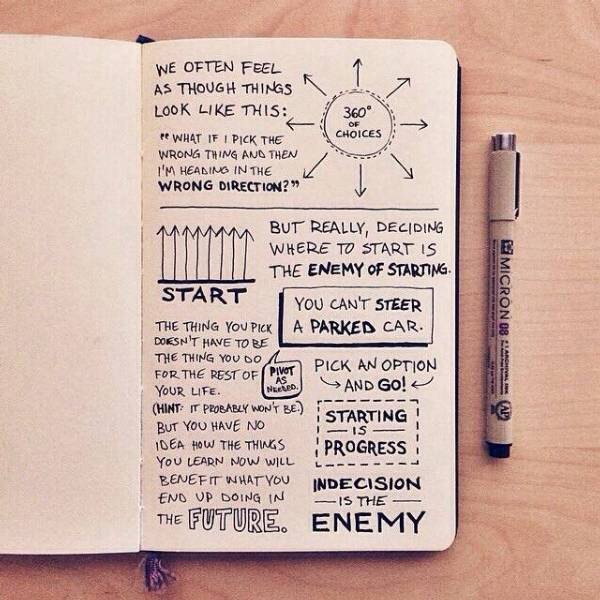 WE OFTEN FEEL
AS THOUGH THINGS
LOOK LIKE THIS:
"WHAT IF I PICK THE
WRONG THING AND THEN
I'M HEADING IN THE
WRONG DIRECTION?"
360°
OF
CHOICES
START
BUT REALLY, DECIDING
WHERE TO START IS
THE ENEMY OF STARTING.
YOU CAN'T STEER
A PARKED CAR.
THE THING YOU PICK
DOESN'T HAVE TO BE
THE THING YOU DO
FOR THE REST OF
YOUR LIFE.
(HINT: IT PROBABLY WON'T BE.)
BUT YOU HAVE NO
IDEA HOW THE THINGS
YOU LEARN NOW WILL
BENEFIT WHAT YOU
END UP DOING IN
THE FUTURE.
PIVOT
AS
NEEDED.
PICK AN OPTION
AND GO!
STARTING
IS
PROGRESS
INDECISION
IS THE
ENEMY
MICRON 08